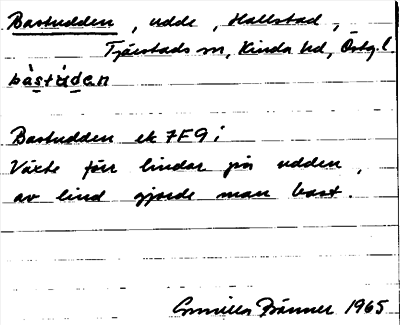 Bastudden, udde, Hallstad,
Tjärstads sn, Kinda hd, Östg.l.
bàstu̇den
Bastudden ek 7F9i
Växte förr lindar på udden,
av lind gjorde man bast.
Gunilla Brånner 1965